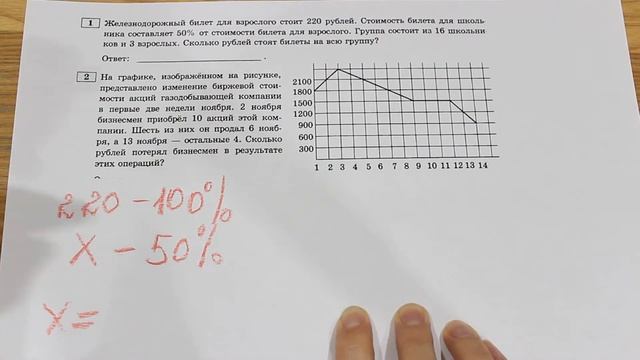 1 Железнодорожный билет для взрослого стоит 220 рублей. Стоимость билета для школь-
ника составляет 50% от стоимости билета для взрослого. Группа состоит из 16 школьни
ков и 3 взрослых. Сколько рублей стоят билеты на всю группу?
Ответ: ____________________ .
2 На графике, изображённом на рисунке,
представлено изменение биржевой стои-
мости акций газодобывающей компании
в первые две недели ноября. 2 ноября
бизнесмен приобрёл 10 акций этой ком-
пании. Шесть из них он продал 6 нояб-
ря, а 13 ноября — остальные 4. Сколько
рублей потерял бизнесмен в результате
этих операций?
2100
1800
1500
1200
900
600
300
1 2 3 4 5 6 7 8 9 10 11 12 13 14
220 – 100%
X – 50%
X =